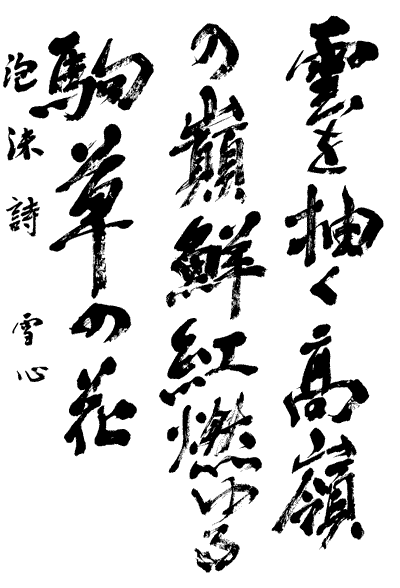 雲を抽く高嶺
の巓鮮紅燃ゆる
駒草の花
泡沫詩 雪心